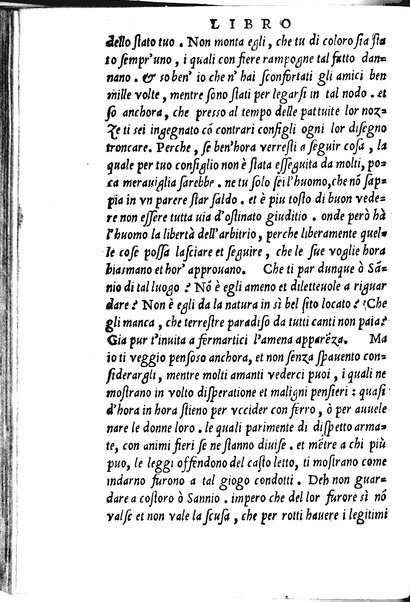 LIBRO
dello stato tuo . Non monta egli, che tu di coloro sia sta
to sempr'uno, i quali con fiere rampogne tal fatto dan-
nano. & so ben' io che n'hai sconfortati gli amici ben
mille volte, mentre sono stati per legarsi in tal nodo . et
so anchora, che presso al tempo delle pattuite lor noz-
Ze ti sei ingegnato cō contrari consigli ogni lor disegno
troncare. Perche, se ben'hora verresti a seguir cosa, la
quale per tuo consiglio non è stata esseguita da molti, po-
ca merauiglia sarebbe . ne tu solo sei l'huomo, che nó sap-
pia in vn parere star saldo . et è piu tosto di buon vede-
re non essere tutta uia d'ostinato giuditio . onde però hà
l'huomo la libertà dell'arbitrio, perche liberamente quel-
le cose possa lasciare et seguire, che le sue voglie hora
biasmano et hor' approuano. Che ti par dunque ò Sā-
nio di tal luogo ? Nó è egli ameno et diletteuole a riguar
dare ? Non è egli da la natura in sì bel sito locato ? Che
gli manca, che terrestre paradiso da tutti canti non paia?
Gia pur t'inuita a fermartici l'amena apparēza. Ma
io ti veggio pensoso anchora, et non senza spauento con-
siderargli, mentre molti amanti vederci puoi, i quali ne
mostrano in volto disperatione et maligni pensieri : quasi
d'hora in hora stieno per vccider con ferro, ò per auuele
nare le donne loro . le quali parimente di dispetto arma-
te, con animi fieri se ne stanno diuise . et mētre a chi più
puo, le leggi offendono del casto letto, ti mostrano come
indarno furono a tal giogo condotti . Deh non guar-
dare a costoro ò Sannio . impero che del lor furore sì nō
valse et non vale la scusa, che per rotti hauere i legitimi